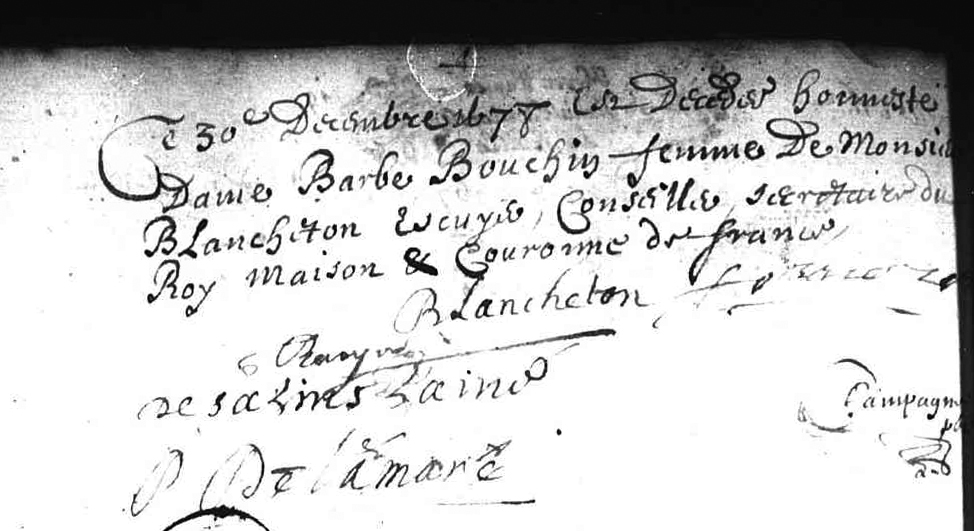 Ce 30e Decembre 1678 est Decedée honneste
Dame Barbe Bouchin femme De Monsieu
BLancheton escuyer, Conseille secretaire du
Roy maison & Couronne de france,
BLancheton
De saLins L'ainé
Campagn
P DeLamare